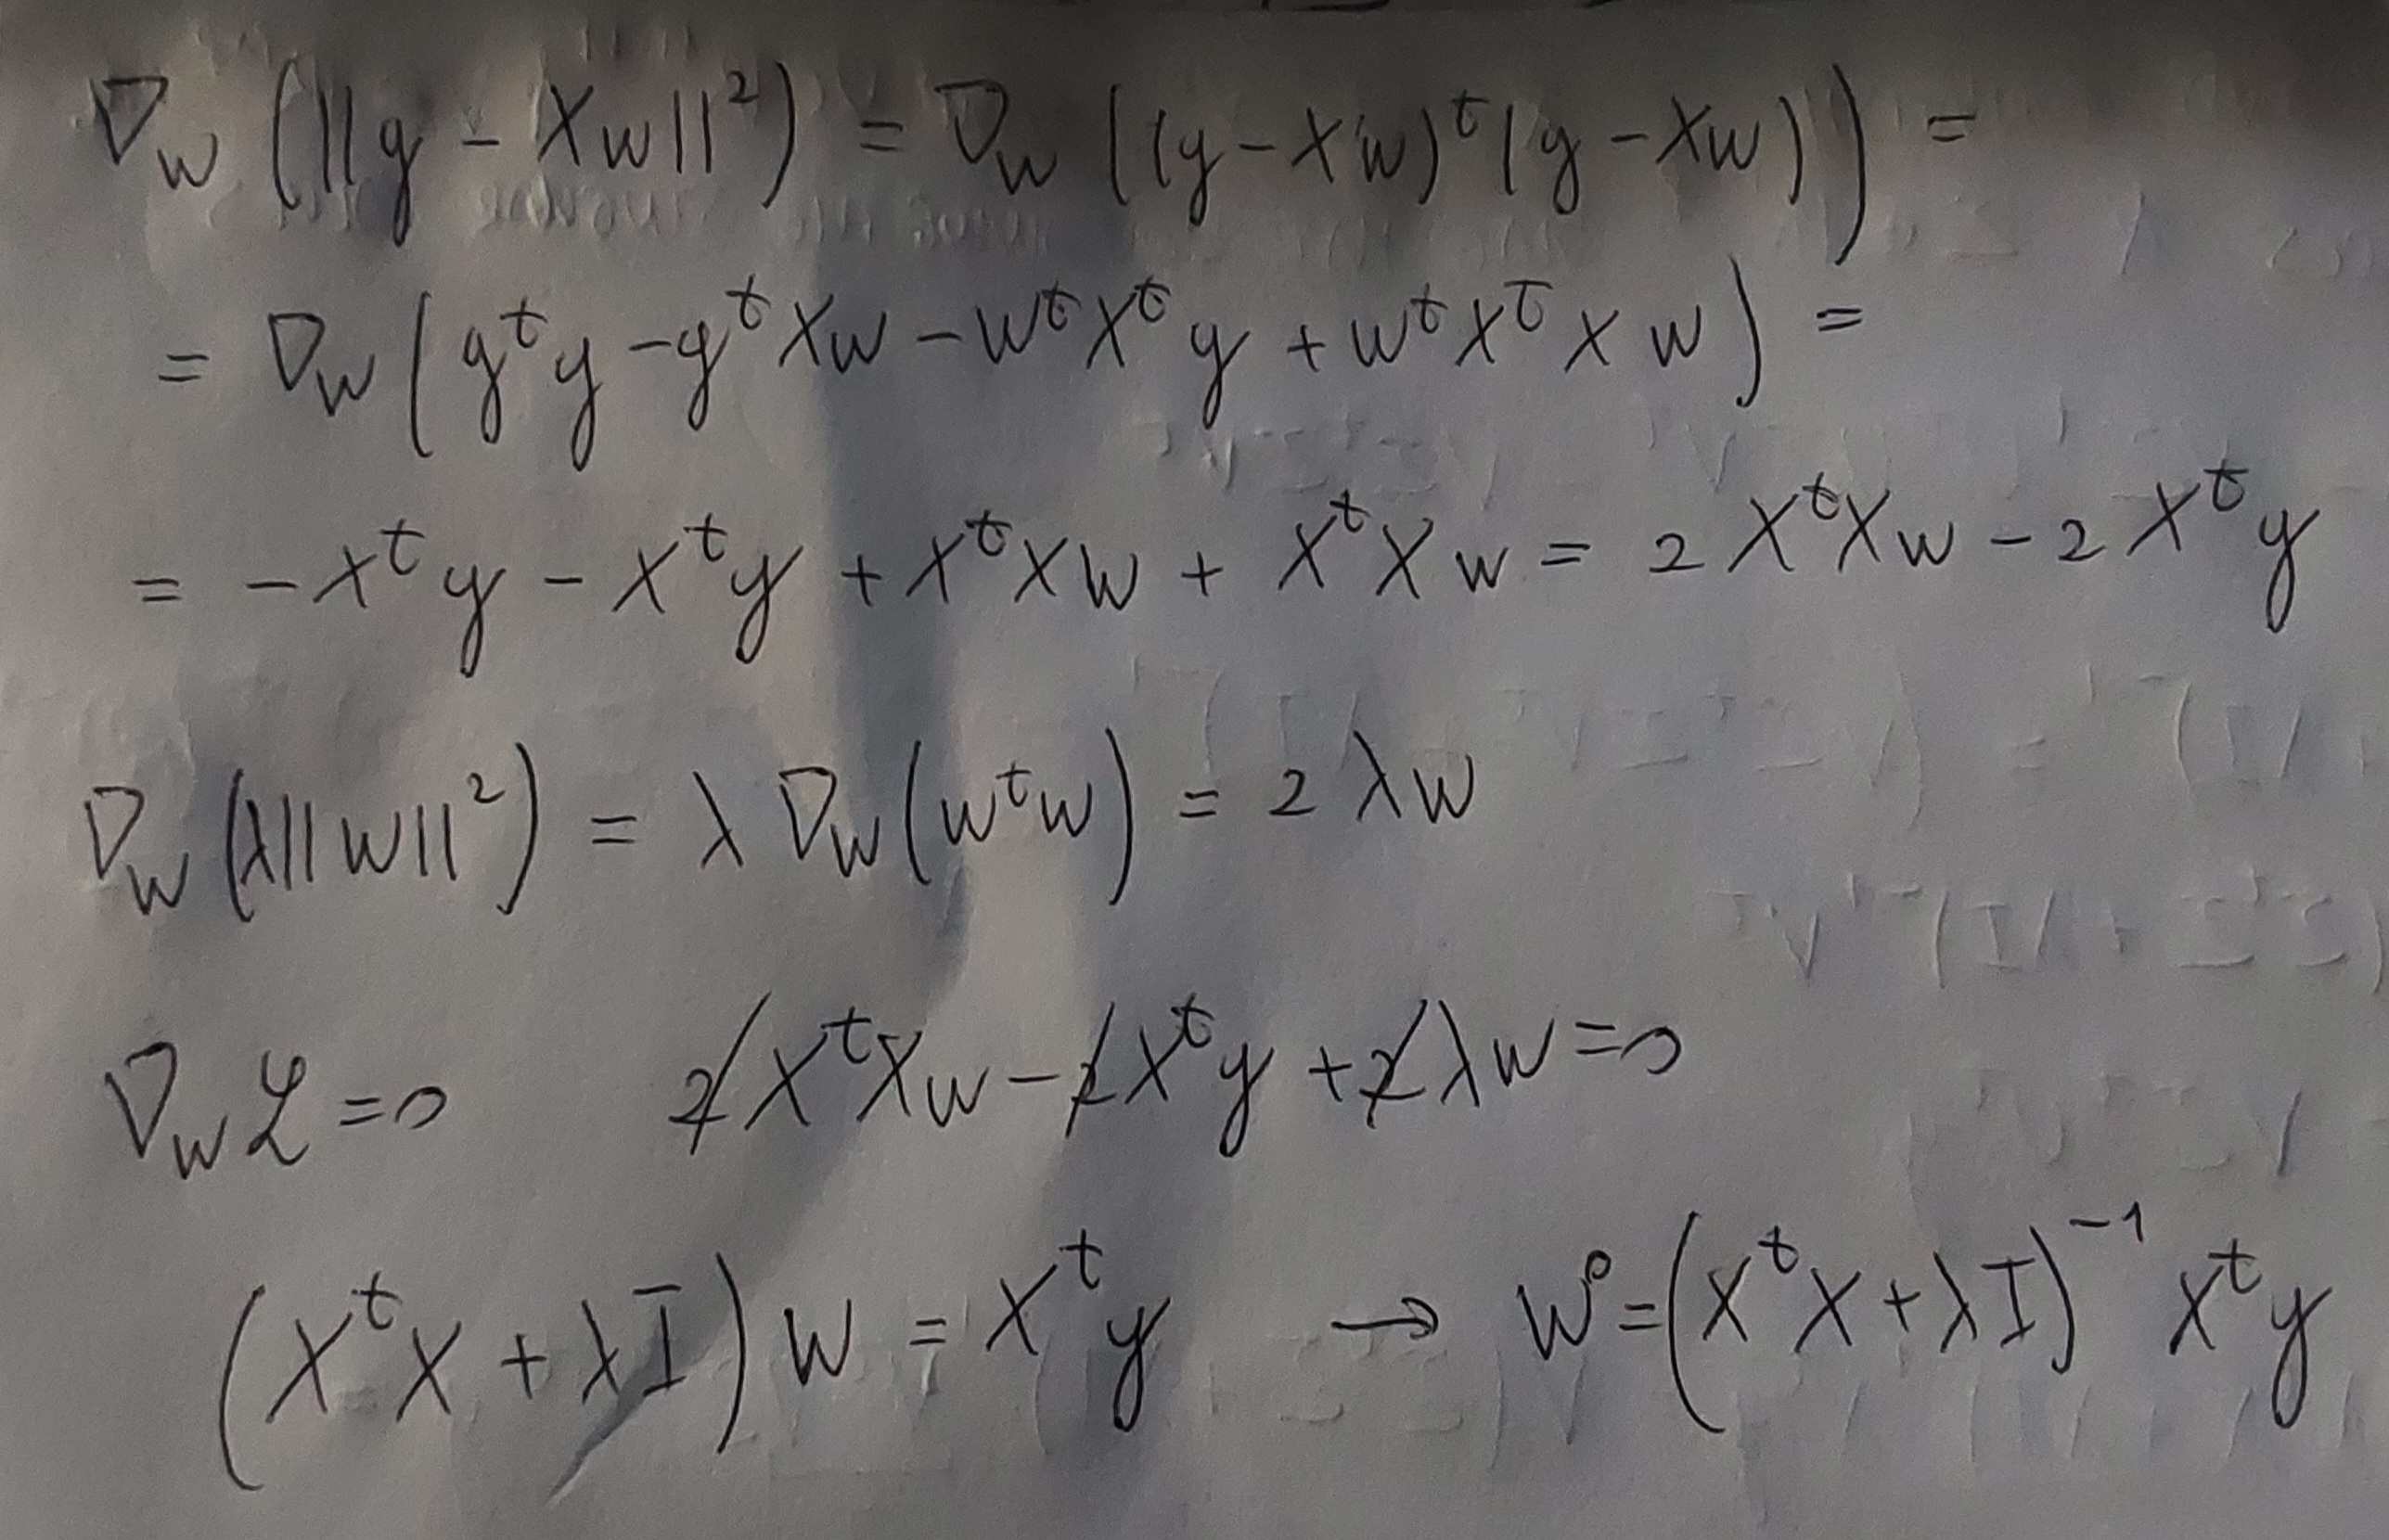 ∇_w (||y - Xw||²) = ∇_w ((y - Xw)^t (y - Xw)) =
= ∇_w (y^t y - y^t Xw - w^t X^t y + w^t X^t X w) =
= -X^t y - X^t y + X^t X w + X^t X w = 2 X^t X w - 2 X^t y
∇_w (λ||w||²) = λ ∇_w (w^t w) = 2 λ w
∇_w ℒ = 0 2̸ X^t X w - 2̸ X^t y + 2̸ λ w = 0
(X^t X + λI) w = X^t y → w° = (X^t X + λI)^-1 X^t y